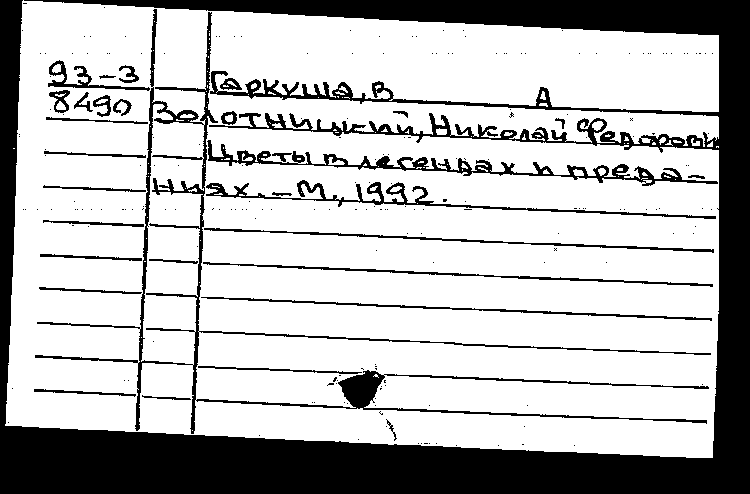 93-3 Гаркуша, В А
8490 Золотницкий, Николай Федорови
Цветы в легендах и преда-
ниях. - М., 1992.